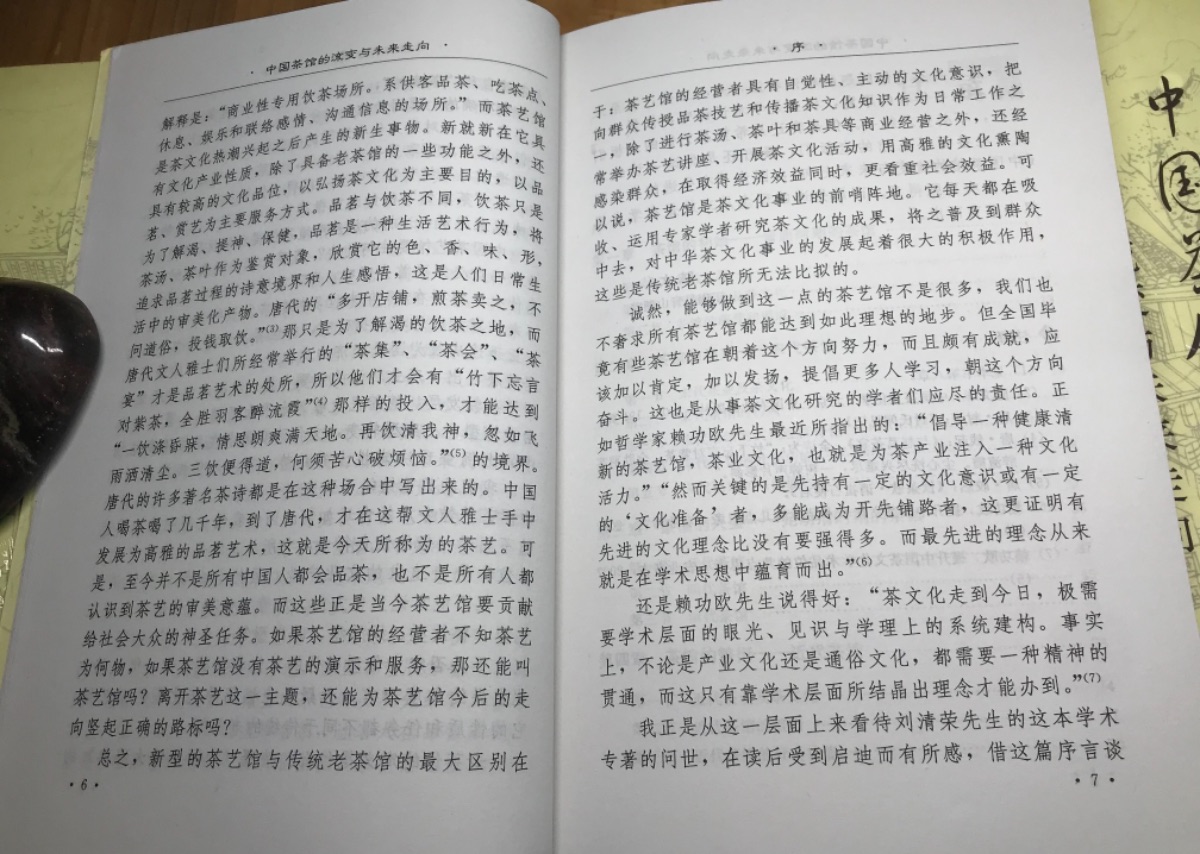 · 中国茶馆的流变与未来走向 ·
解释是：“商业性专用饮茶场所。系供客品茶、吃茶点、
休息、娱乐和联络感情、沟通信息的场所。”而茶艺馆
是茶文化热潮兴起之后产生的新生事物。新就新在它具
有文化产业性质，除了具备老茶馆的一些功能之外，还
具有较高的文化品位，以弘扬茶文化为主要目的，以品
茗、赏艺为主要服务方式。品茗与饮茶不同，饮茶只是
为了解渴、提神、保健，品茗是一种生活艺术行为，将
茶汤、茶叶作为鉴赏对象，欣赏它的色、香、味、形，
追求品茗过程的诗意境界和人生感悟，这是人们日常生
活中的审美化产物。唐代的“多开店铺，煎茶卖之，不
问道俗，投钱取饮。”⁽³⁾那只是为了解渴的饮茶之地，而
唐代文人雅士们所经常举行的“茶集”、“茶会”、“茶
宴”才是品茗艺术的处所，所以他们才会有“竹下忘言
对紫茶，全胜羽客醉流霞”⁽⁴⁾那样的投入，才能达到
“一饮涤昏寐，情思朗爽满天地。再饮清我神，忽如飞
雨洒清尘。三饮便得道，何须苦心破烦恼。”⁽⁵⁾的境界。
唐代的许多著名茶诗都是在这种场合中写出来的。中国
人喝茶喝了几千年，到了唐代，才在这帮文人雅士手中
发展为高雅的品茗艺术，这就是今天所称为的茶艺。可
是，至今并不是所有中国人都会品茶，也不是所有人都
认识到茶艺的审美意蕴。而这些正是当今茶艺馆要贡献
给社会大众的神圣任务。如果茶艺馆的经营者不知茶艺
为何物，如果茶艺馆没有茶艺的演示和服务，那还能叫
茶艺馆吗？离开茶艺这一主题，还能为茶艺馆今后的走
向竖起正确的路标吗？
总之，新型的茶艺馆与传统老茶馆的最大区别在
· 6 ·
· 序 ·
于：茶艺馆的经营者具有自觉性、主动的文化意识，把
向群众传授品茶技艺和传播茶文化知识作为日常工作之
一，除了进行茶汤、茶叶和茶具等商业经营之外，还经
常举办茶艺讲座、开展茶文化活动，用高雅的文化熏陶
感染群众，在取得经济效益同时，更看重社会效益。可
以说，茶艺馆是茶文化事业的前哨阵地。它每天都在吸
收、运用专家学者研究茶文化的成果，将之普及到群众
中去，对中华茶文化事业的发展起着很大的积极作用，
这些是传统老茶馆所无法比拟的。
诚然，能够做到这一点的茶艺馆不是很多，我们也
不奢求所有茶艺馆都能达到如此理想的地步。但全国毕
竟有些茶艺馆在朝着这个方向努力，而且颇有成就，应
该加以肯定，加以发扬，提倡更多人学习，朝这个方向
奋斗。这也是从事茶文化研究的学者们应尽的责任。正
如哲学家赖功欧先生最近所指出的：“倡导一种健康清
新的茶艺馆，茶业文化，也就是为茶产业注入一种文化
活力。”“然而关键的是先持有一定的文化意识或有一定
的‘文化准备’者，多能成为开先铺路者，这更证明有
先进的文化理念比没有要强得多。而最先进的理念从来
就是在学术思想中蕴育而出。”⁽⁶⁾
还是赖功欧先生说得好：“茶文化走到今日，极需
要学术层面的眼光、见识与学理上的系统建构。事实
上，不论是产业文化还是通俗文化，都需要一种精神的
贯通，而这只有靠学术层面所结晶出理念才能办到。”⁽⁷⁾
我正是从这一层面上来看待刘清荣先生的这本学术
专著的问世，在读后受到启迪而有所感，借这篇序言谈
· 7 ·
中国茶